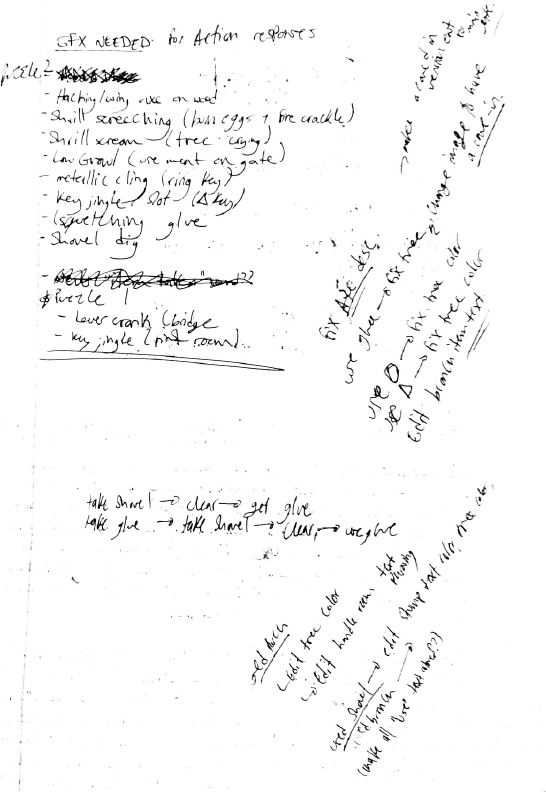 SFX NEEDED for Action responses
Puzzle 2
- Hacking/using axe on wood
- Shrill screeching (burn eggs + fire crackle)
- Shrill scream (tree crying)
- Low Growl (use meat on gate)
- metallic cling (ring key)
- Key jingle / slot (Δ key)
- squelching glue
- Shovel dig
Puzzle 1
- Lever crank (bridge
- key jingle (pink room)
fix AXE desc.
use glue → fix tree & change image to have
a caved in
→ make a caved in
version
use O → fix tree color
use Δ → fix tree color
Edit branch item text
take shovel → clear → get glue
take glue → take shovel → clear → use glue
used torch
↳ Edit tree color
↳ Edit handle room text
used shovel → edit stump text color tree color
used branch →
(make all tree text